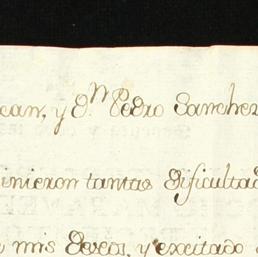 can, y D.ⁿ Pedro Sanchez
inieron tantas dificultad
mis deseos, y excitado